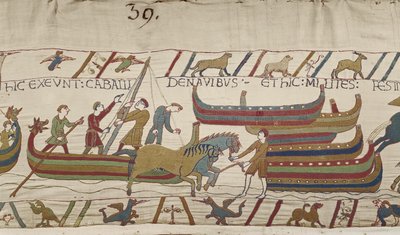 39.
HIC EXEVNT: CABALLI DE NAVIBVS:- ET HIC: MILITES: FESTI